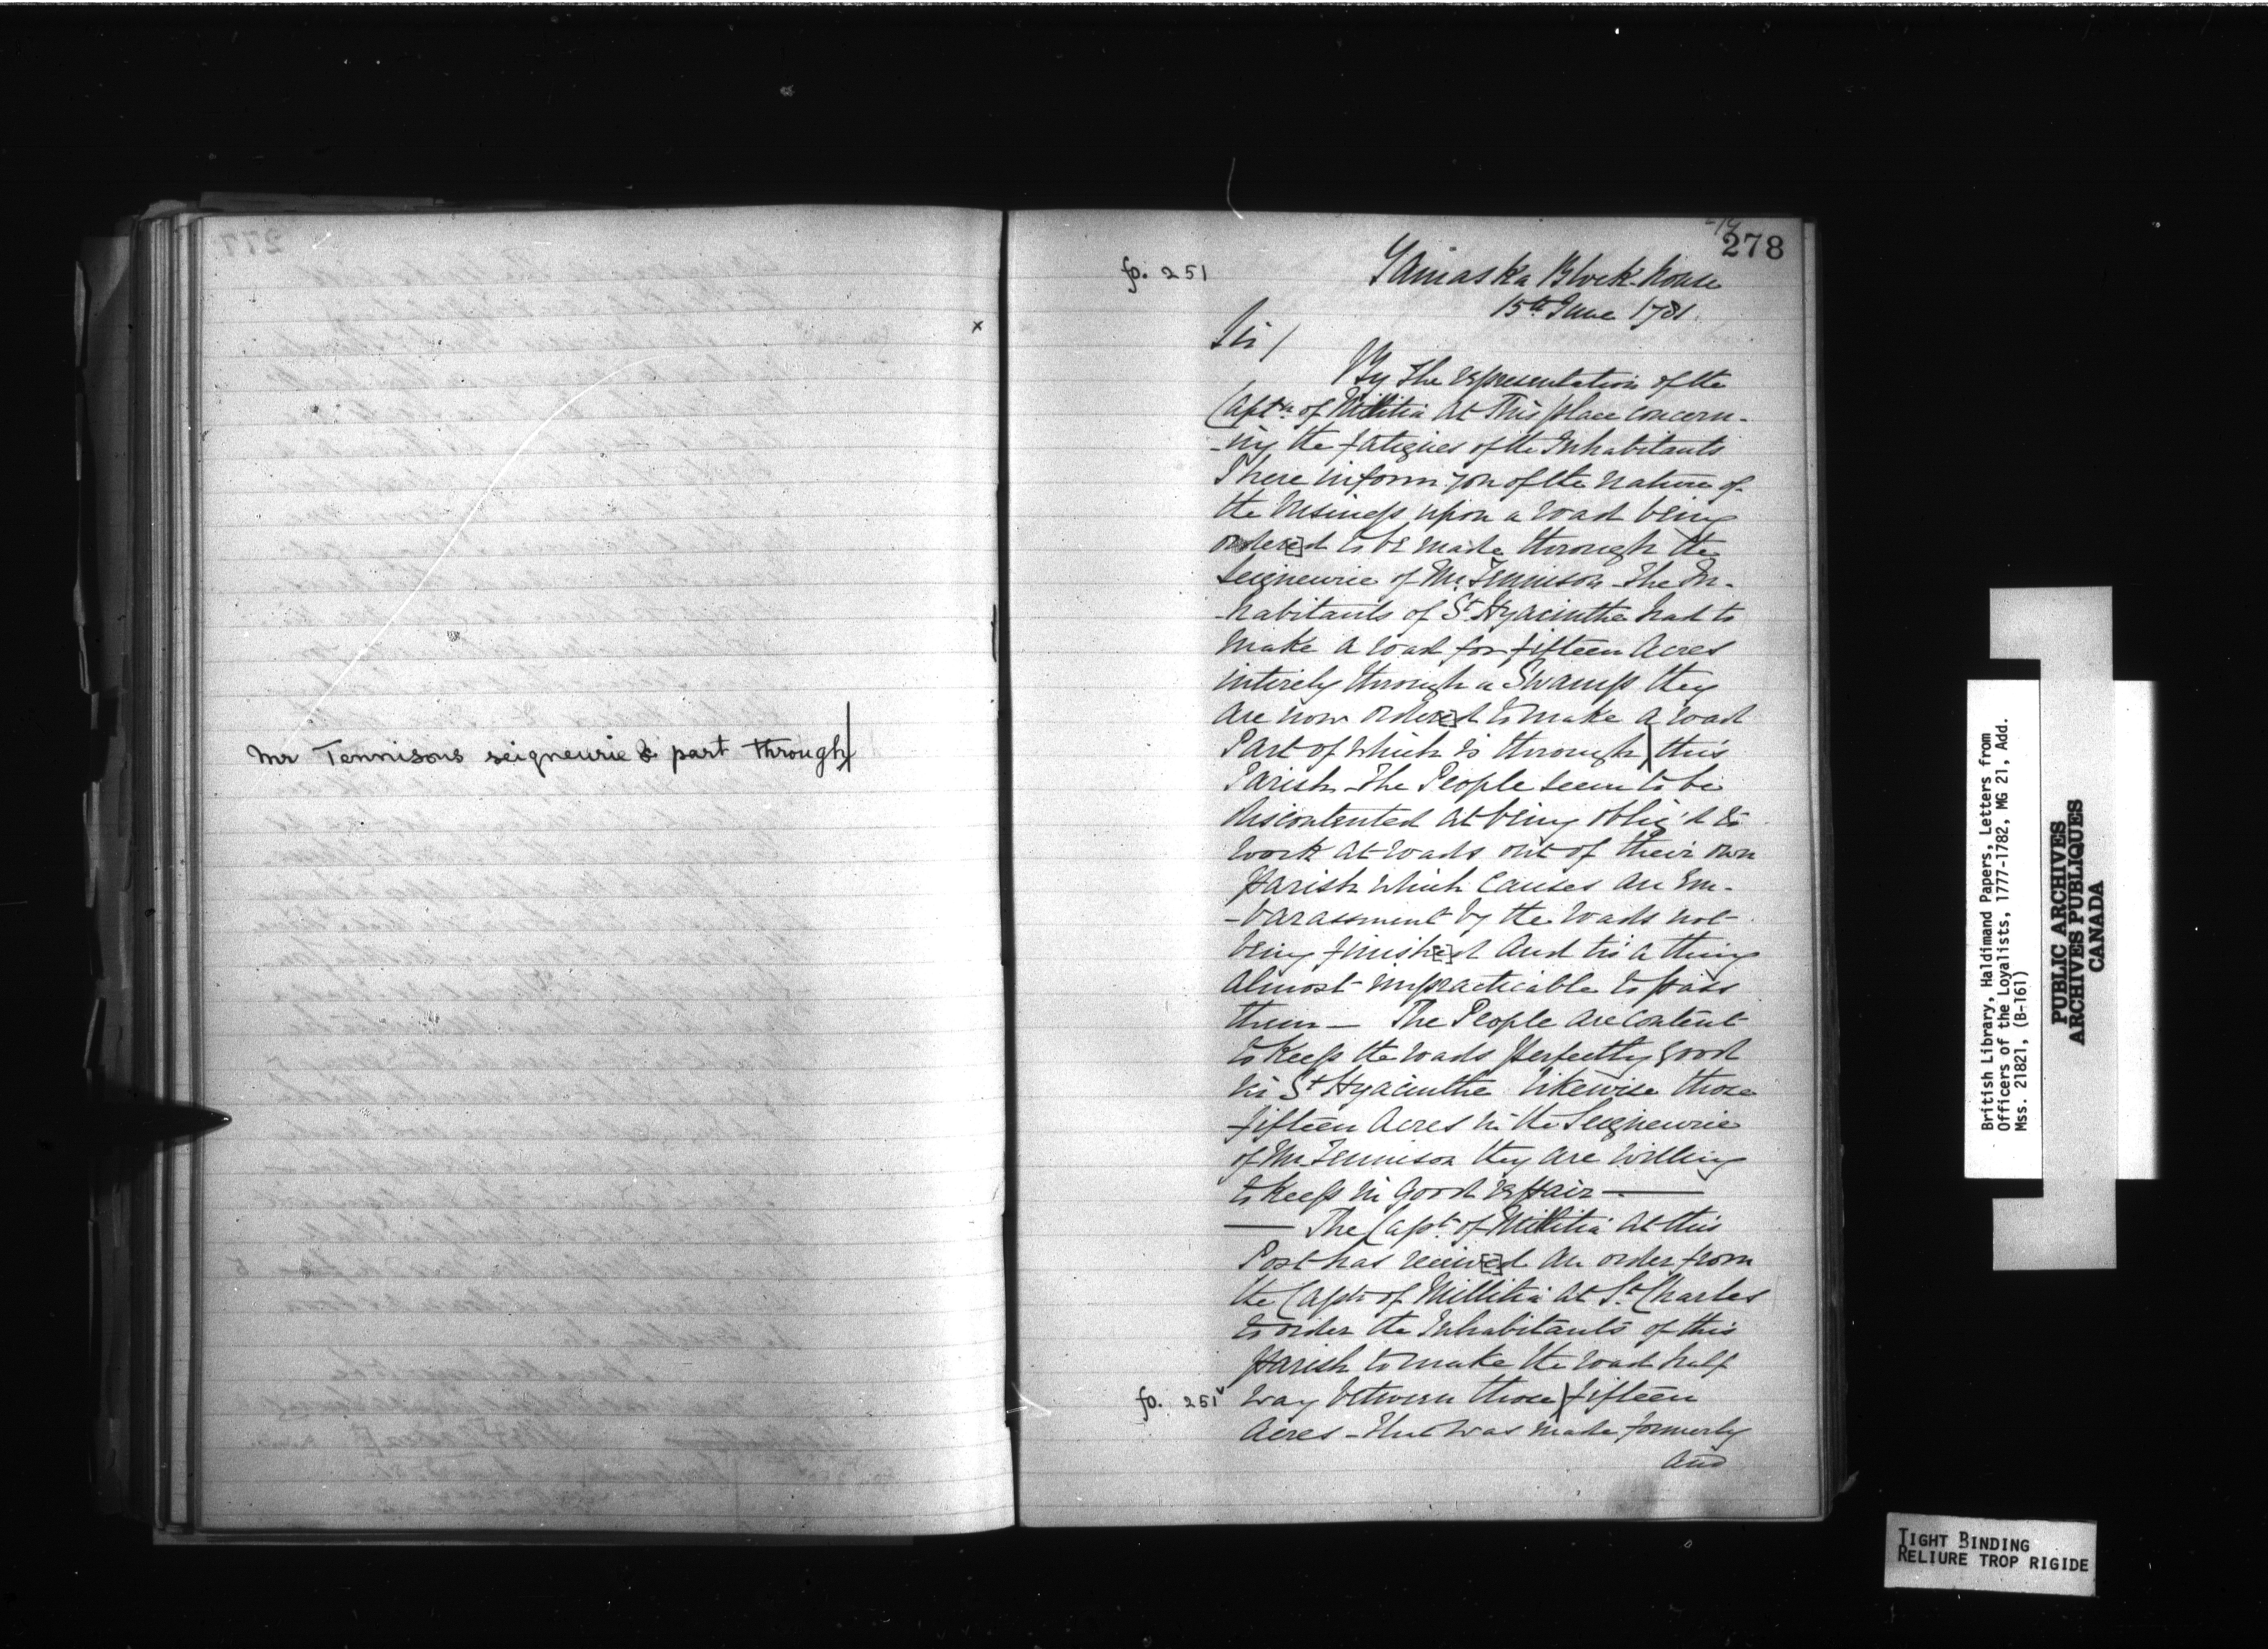 Mr Tennisons seigneurie & part through
278
fo. 251
Yamaska Block-house
15th June 1781.
Sir/
By the representation of the
Captn of Militia at This place concern-
-ing the fatigues of the Inhabitants
I here inform you of the nature of
the business upon a road being
order[e]d to be made through the
Seigneurie of Mr Tennison The In-
-habitants of St Hyacinthe had to
make a road for fifteen Acres
intirely through a Swamp they
are now order[e]d to make a road
Part of which is through this
Parish - The People seem to be
discontented at being oblig'd to
work at roads out of their own
parish which causes an Em-
-barassment by the roads not
being finish[e]d and tis a thing
almost impracticable to pass
them — The People are content
to keep the roads perfectly good
in St Hyacinthe likewise those
fifteen Acres in the Seigneurie
of Mr Tennison they are willing
to keep in good repair —
— The Capt. of Militia at this
Post has receiv[e]d an order from
the Captn of Millitia at St. Charles
to order the Inhabitants of this
parish to make the road half
fo. 251v way between those fifteen
Acres - that was made formerly
and
British Library, Haldimand Papers, Letters from
Officers of the Loyalists, 1777-1782, MG 21, Add.
Mss. 21821, (B-161)
PUBLIC ARCHIVES
ARCHIVES PUBLIQUES
CANADA
TIGHT BINDING
RELIURE TROP RIGIDE